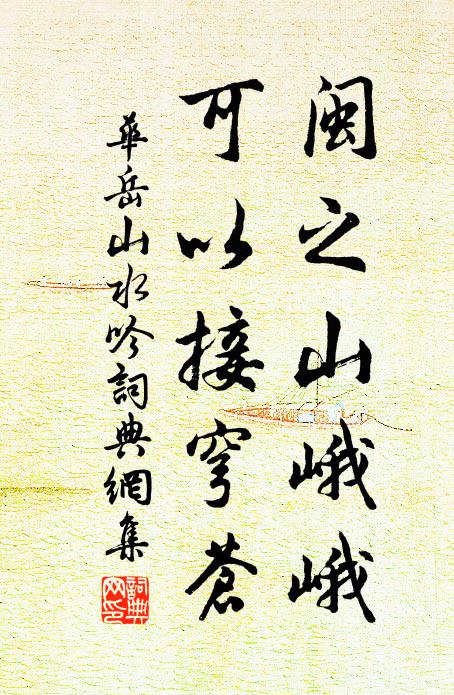 闽之山峨峨
可以接穹蒼
華岳山水吟詞典網集
詞典网印